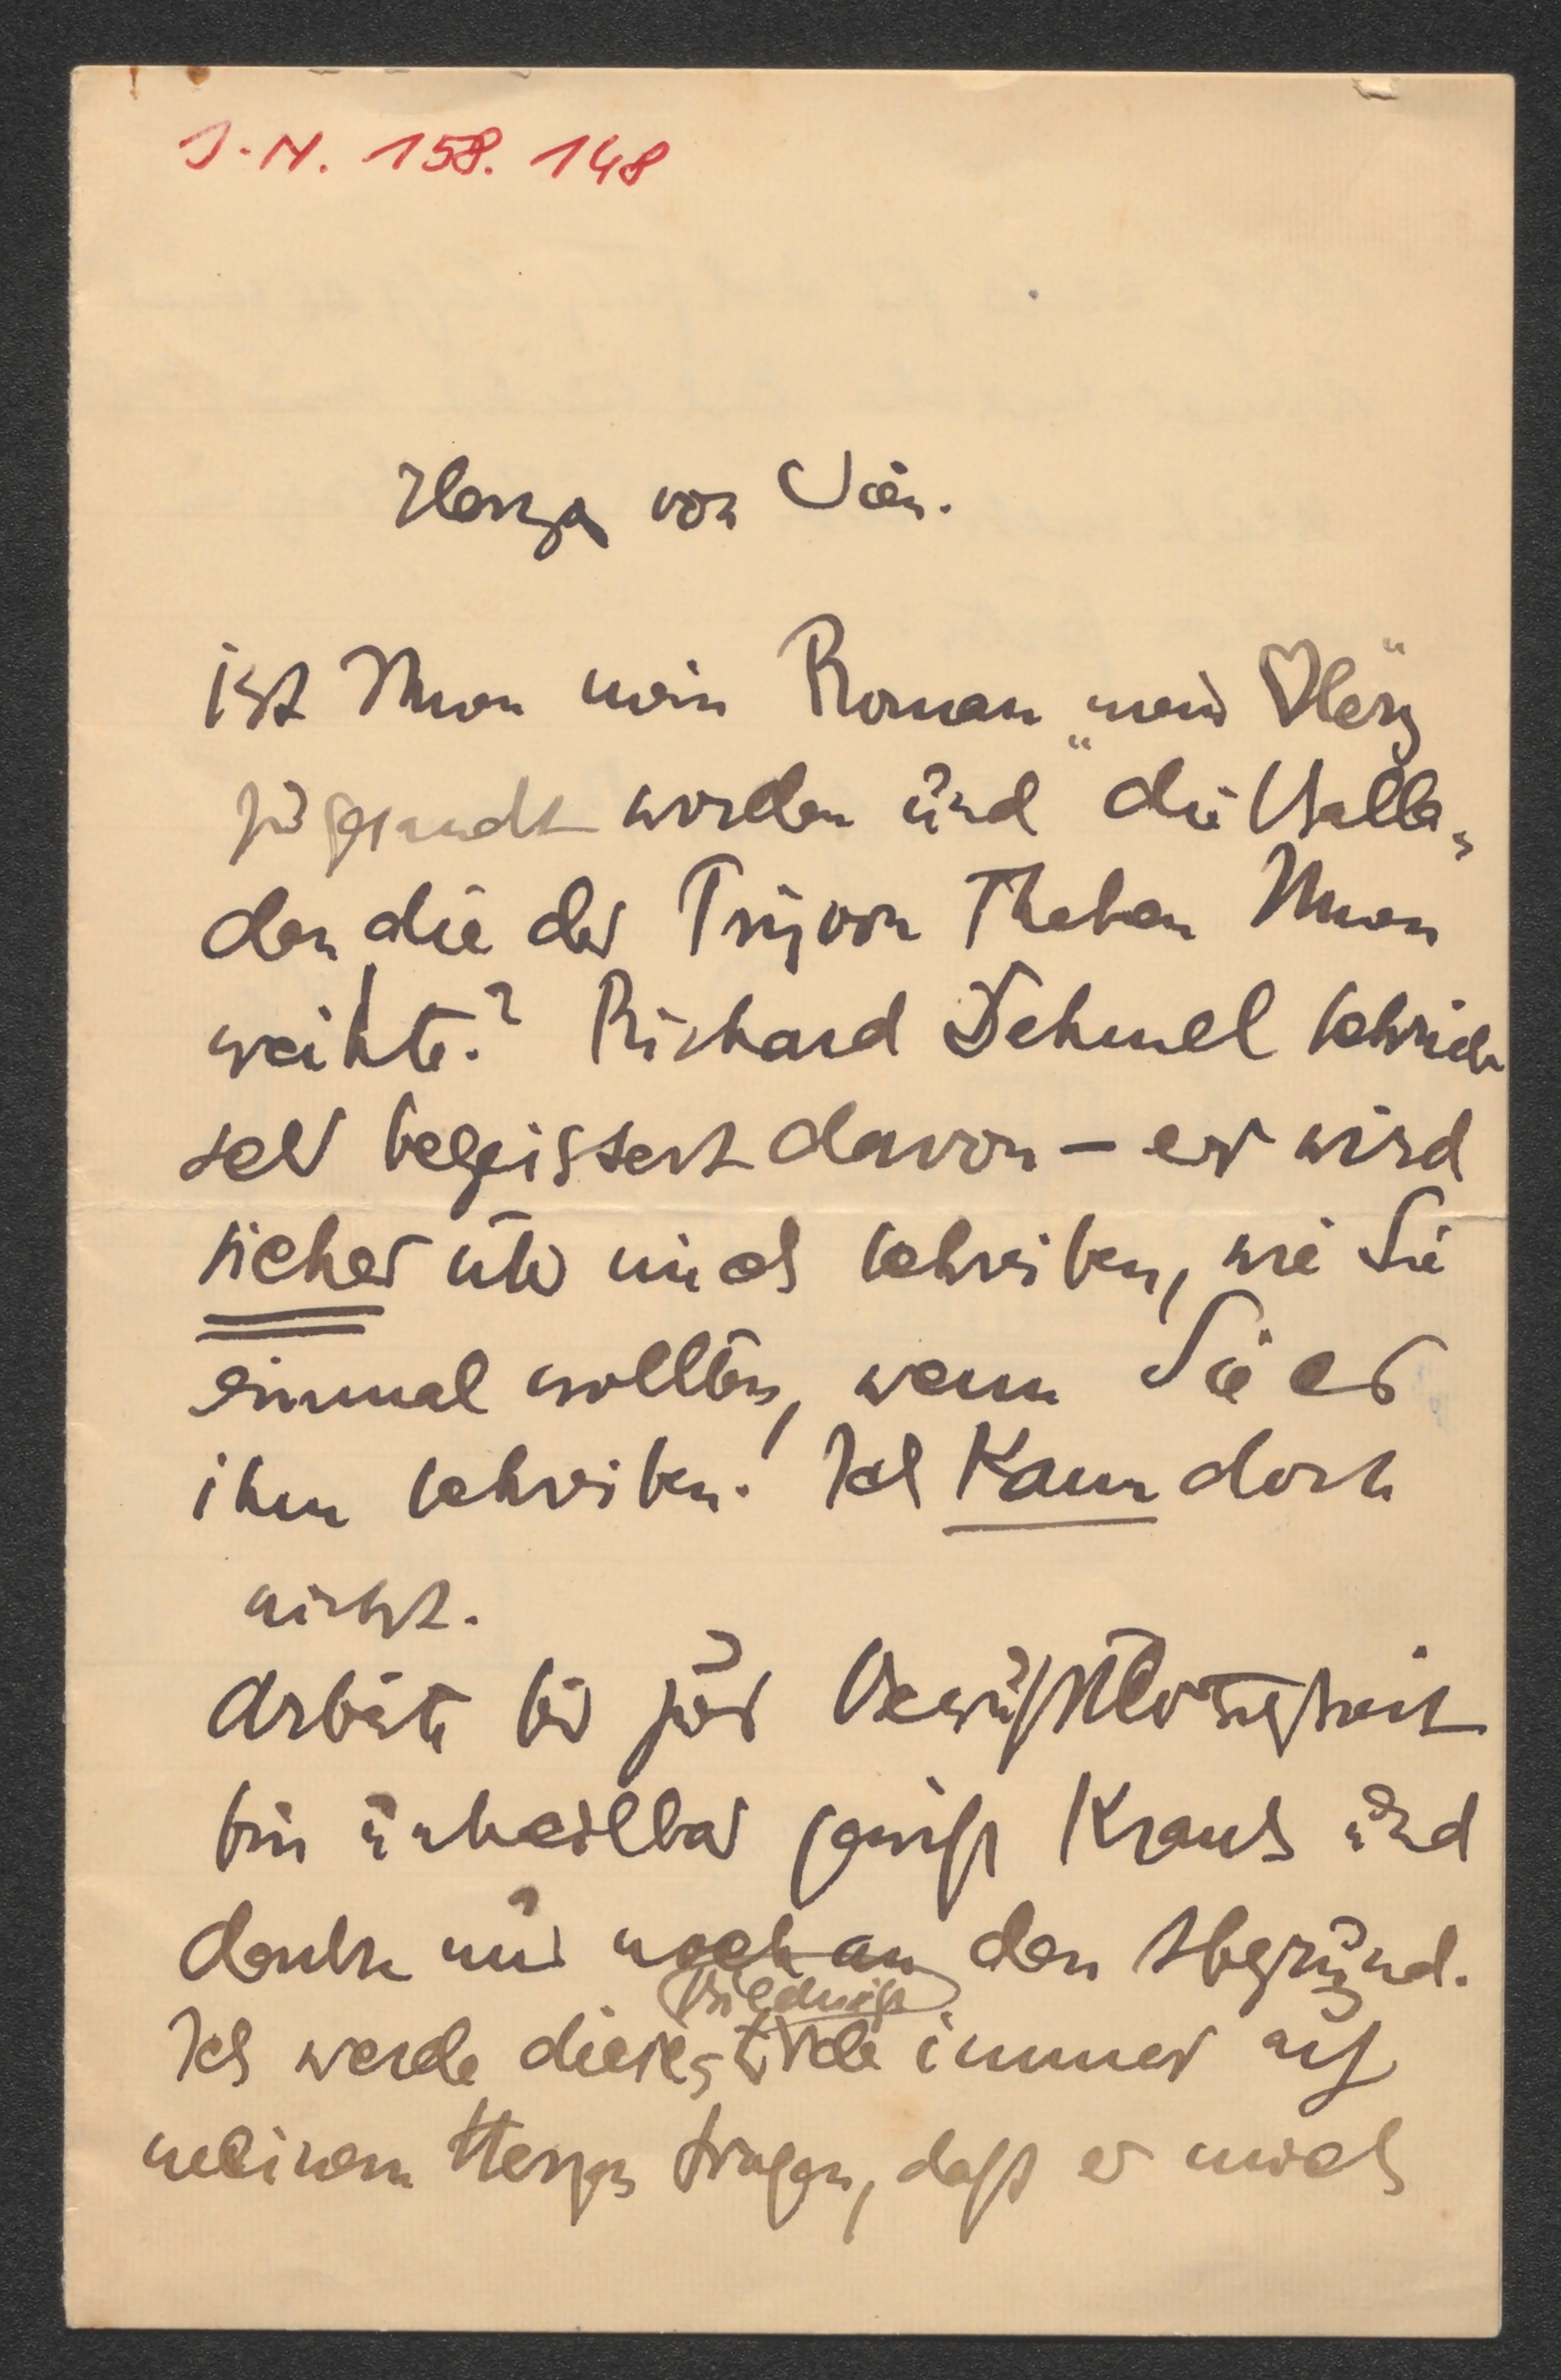 J.N. 158.148
Herzog von Wien.
ist Ihnen mein Roman „mein Herz"
zugesandt worden und die Balla-
den die der Prinz von Theben Ihnen
weihte? Richard Dehmel schrieb
sehr begeistert davon – er wird
sicher über mich schreiben, wie Sie
einmal wollten, wenn Sie es
ihm schreiben. Ich kann doch
nicht.
Arbeite bis zur Bewußtlosigkeit
bin unheilbar gewiß krank und
denke nur noch an den Abgrund.
Bildniß
Ich werde dieses immer auf
meinem Herzen tragen, daß er mich